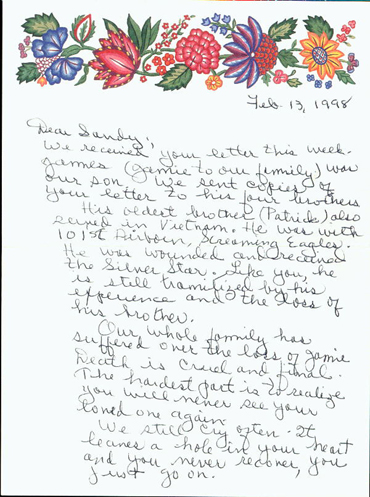 Feb. 13, 1998
Dear Sandy,
We received your letter this week.
James (Jamie to our family) was
our son. We sent copies of
your letter to his four brothers
His oldest brother (Patrick) also
served in Vietnam. He was with
101st Airbourn, Screaming Eagles.
He was wounded and received
the Silver Star. Like you, he
is still tramitized by his
experience and the loss of
his brother.
Our whole family has
suffered over the loss of Jamie
Death is cruel and final.
The hardest part is to realize
you will never see your
loved one again.
We still cry often. It
leaves a hole in your heart
and you never recover, you
just go on.